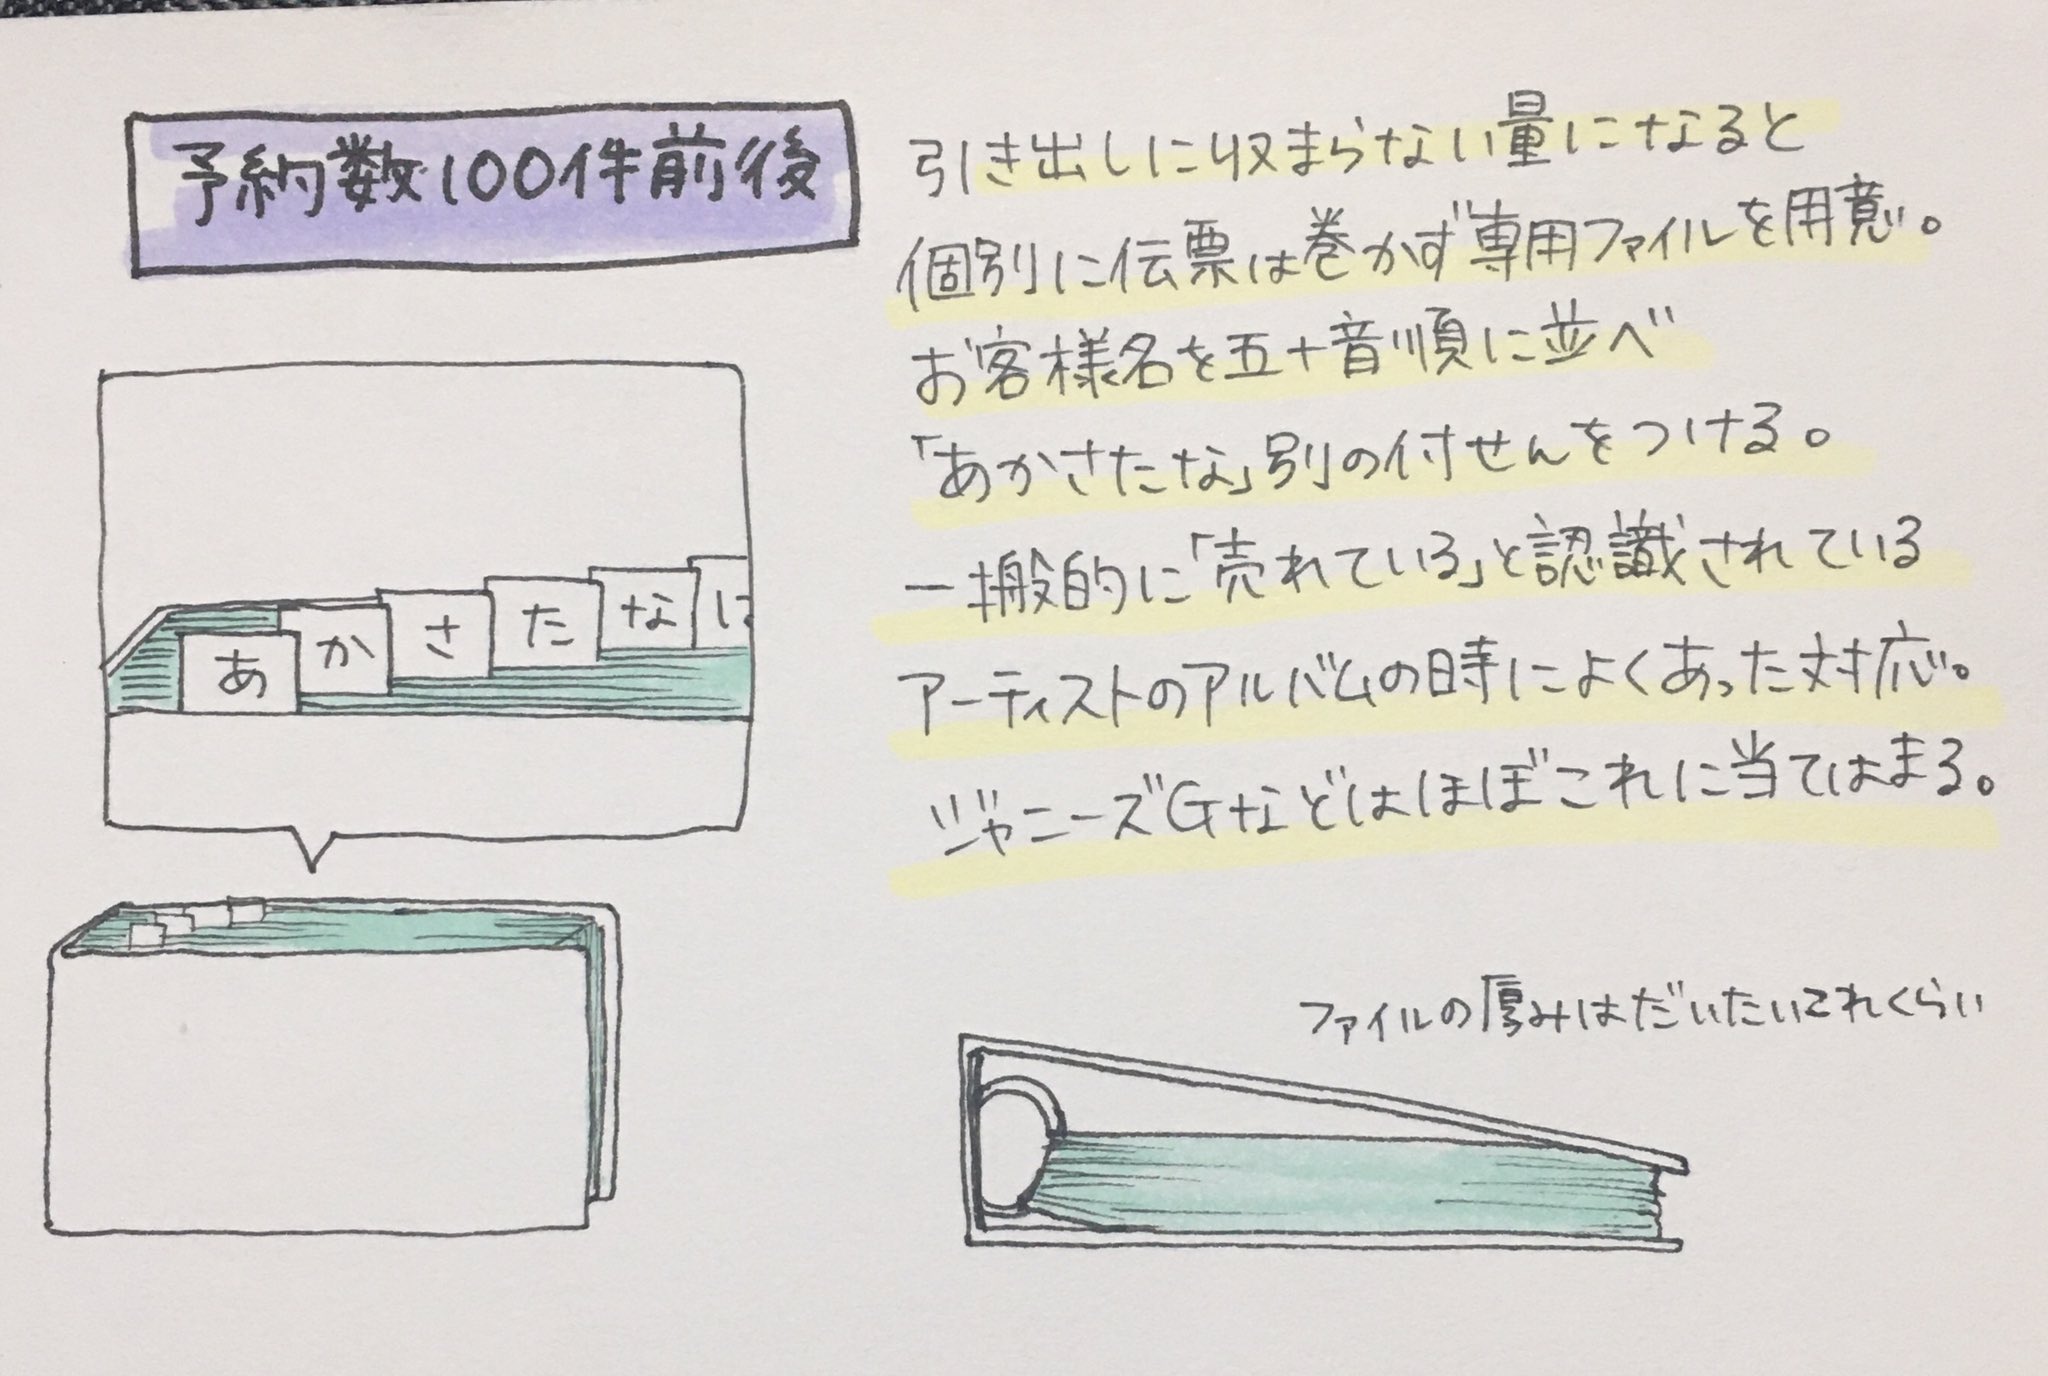 予約数100件前後
引き出しに収まらない量になると
個別に伝票は巻かず専用ファイルを用意。
お客様名を五十音順に並べ
「あかさたな」別の付せんをつける。
一般的に「売れている」と認識されている
アーティストのアルバムの時によくあった対応。
ジャニーズGなどはほぼこれに当てはまる。
あ
か
さ
た
な
は
ファイルの厚みはだいたいこれくらい